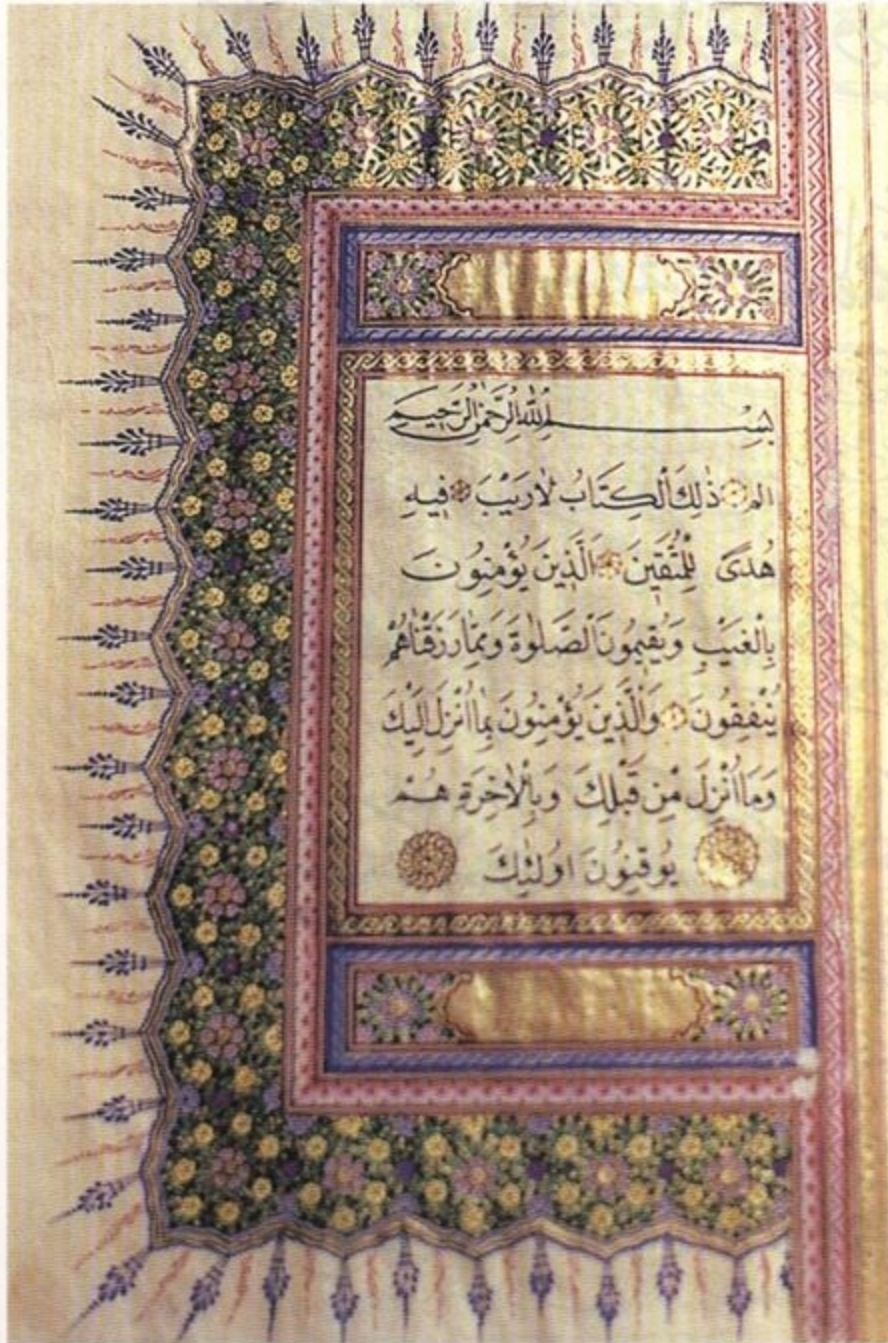 بِسْمِ اللهِ الرَّحْمٰنِ الرَّحِيمِ
الم ذٰلِكَ الْكِتَابُ لَارَيْبَ فِيهِ
هُدًى لِلْمُتَّقِينَ اَلَّذِينَ يُؤْمِنُونَ
بِالْغَيْبِ وَيُقِيمُونَ الصَّلٰوةَ وَمِمَّا رَزَقْنَاهُمْ
يُنْفِقُونَ وَالَّذِينَ يُؤْمِنُونَ بِمَا اُنْزِلَ اِلَيْكَ
وَمَا اُنْزِلَ مِنْ قَبْلِكَ وَبِالْاٰخِرَةِ هُمْ
يُوقِنُونَ اُولٰئِكَ